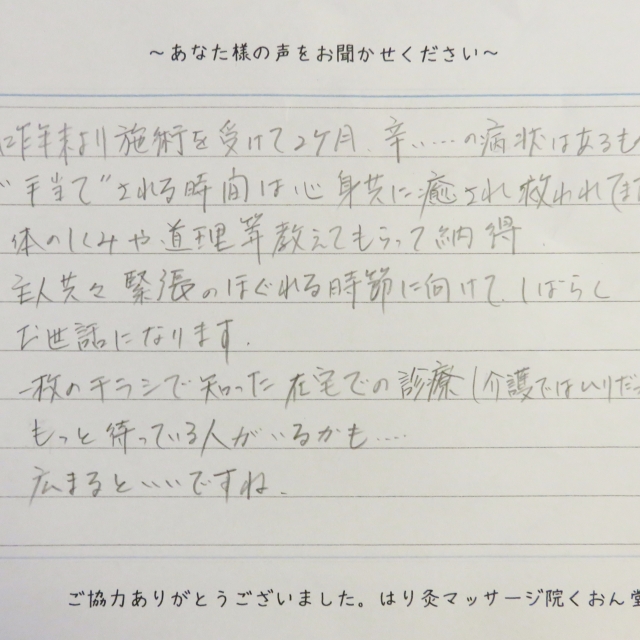 ～あなた様の声をお聞かせください～
昨年末より施術を受けて2ケ月、辛い…の病状はあるも
"手当て"される時間は心身共に癒され救われてま
体のしくみや道理等教えてもらって納得.
主人共々緊張のほぐれる時節に向けて、しばらく
お世話になります.
一枚のチラシで知った在宅での診療(介護ではムリだっ
もっと待っている人がいるかも….
広まるといいですね.
ご協力ありがとうございました。はり灸マッサージ院くおん堂